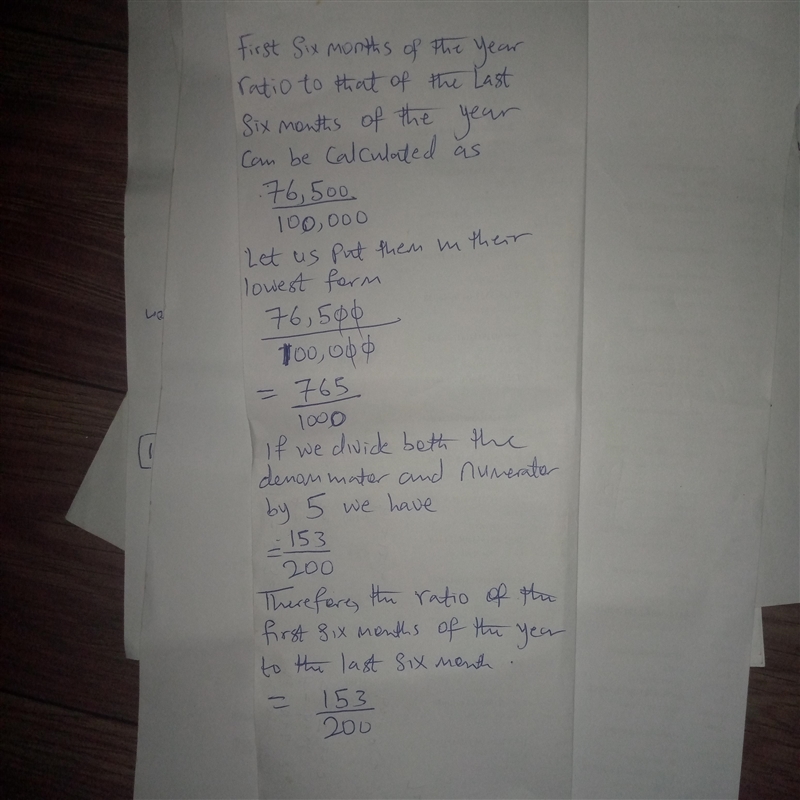 First Six months of the year
ratio to that of the Last
Six months of the year
Can be Calculated as
76,500
100,000
Let us put them in their
lowest form
76,500
100,000
= 765
1000
If we divide both the
denominator and numerator
by 5 we have
= 153
200
Therefore, the ratio of the
first six months of the year
to the last six month.
= 153
200